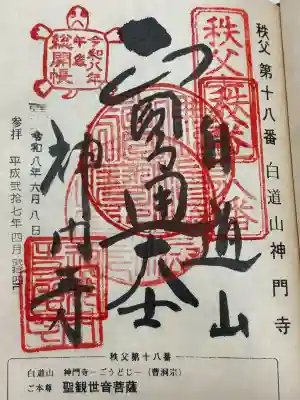 秩父第十八番 白道山神門寺
秩父
秩父
十八番
白道山
圓通大士
神門寺
令和八年
午歳
総開帳
令和八年六月八日
参拝 平成弐拾七年四月弐拾四日
秩父第十八番
白道山 神門寺―ごうどじ―(曹洞宗)
ご本尊 聖観世音菩薩